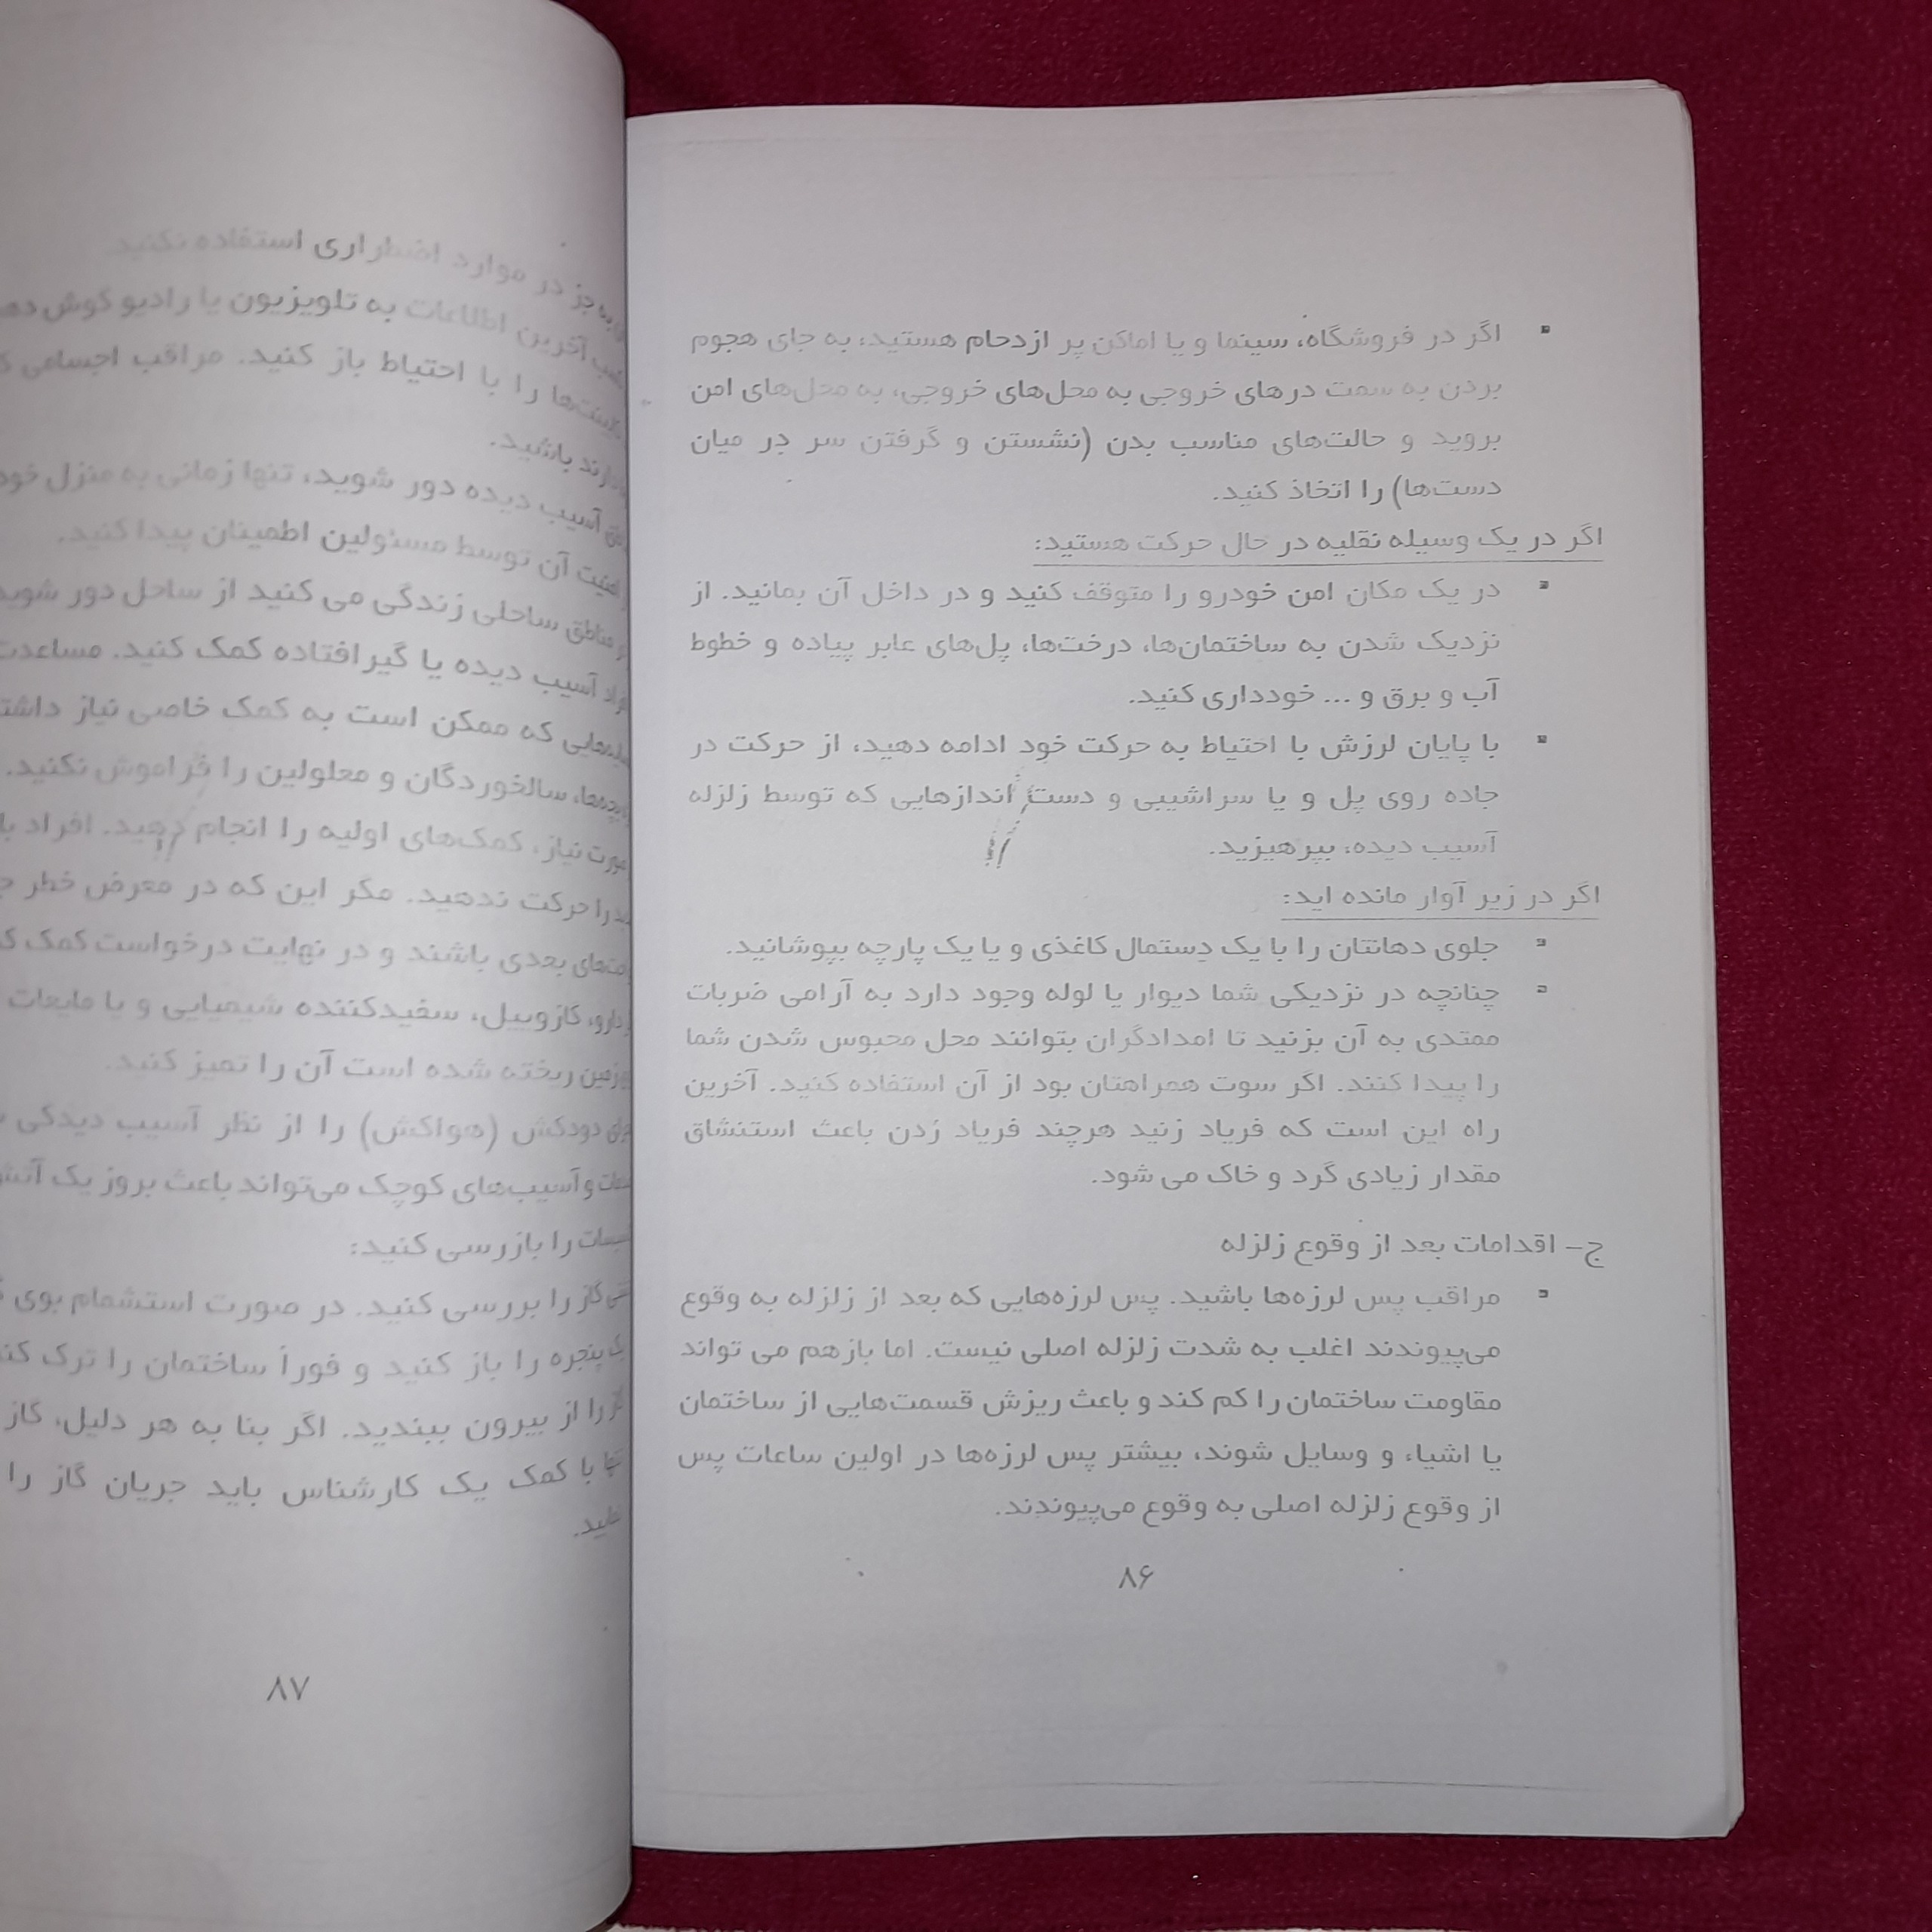 اگر در فروشگاه، سینما و یا اماکن پر ازدحام هستید، به جای هجوم
بردن به سمت درهای خروجی به محل‌های خروجی، به محل‌های امن
بروید و حالت‌های مناسب بدن (نشستن و گرفتن سر در میان
دست‌ها) را اتخاذ کنید.
اگر در یک وسیله نقلیه در حال حرکت هستید:
در یک مکان امن خودرو را متوقف کنید و در داخل آن بمانید. از
نزدیک شدن به ساختمان‌ها، درخت‌ها، پل‌های عابر پیاده و خطوط
آب و برق و ... خودداری کنید.
با پایان لرزش با احتیاط به حرکت خود ادامه دهید، از حرکت در
جاده روی پل و یا سراشیبی و دست اندازهایی که توسط زلزله
آسیب دیده، بپرهیزید.
اگر در زیر آوار مانده اید:
جلوی دهانتان را با یک دستمال کاغذی و یا یک پارچه بپوشانید.
چنانچه در نزدیکی شما دیوار یا لوله وجود دارد به آرامی ضربات
ممتدی به آن بزنید تا امدادگران بتوانند محل محبوس شدن شما
را پیدا کنند. اگر سوت همراهتان بود از آن استفاده کنید. آخرین
راه این است که فریاد زنید هرچند فریاد زدن باعث استنشاق
مقدار زیادی گرد و خاک می شود.
ج- اقدامات بعد از وقوع زلزله
مراقب پس لرزه‌ها باشید. پس لرزه‌هایی که بعد از زلزله به وقوع
می‌پیوندند اغلب به شدت زلزله اصلی نیست. اما بازهم می تواند
مقاومت ساختمان را کم کند و باعث ریزش قسمت‌هایی از ساختمان
یا اشیاء و وسایل شوند، بیشتر پس لرزه‌ها در اولین ساعات پس
از وقوع زلزله اصلی به وقوع می‌پیوندند.
۸۶
به جز در موارد اضطراری استفاده نکنید.
آخرین اطلاعات به تلویزیون یا رادیو گوش
را با احتیاط باز کنید. مراقب اجسامی
باشید.
آسیب دیده دور شوید، تنها زمانی به منزل
آن توسط مسئولین اطمینان پیدا کنید.
مناطق ساحلی زندگی می کنید از ساحل دور
آسیب دیده یا گیر افتاده کمک کنید.
که ممکن است به کمک خاصی نیاز
سالخوردگان و معلولین را فراموش نکنید.
نیاز، کمک‌های اولیه را انجام دهید. افراد
را حرکت ندهید. مگر این که در معرض خطر
بعدی باشند و در نهایت درخواست کمک
دارو، گازوییل، سفیدکننده شیمیایی و یا مایعات
زمین ریخته شده است آن را تمیز کنید.
دودکش (هواکش) را از نظر آسیب دیدگی
و آسیب‌های کوچک می‌تواند باعث بروز یک
را بازرسی کنید:
گاز را بررسی کنید. در صورت استشمام بوی
پنجره را باز کنید و فوراً ساختمان را ترک
را از بیرون ببندید. اگر بنا به هر دلیل، گاز
با کمک یک کارشناس باید جریان گاز را
۸۷